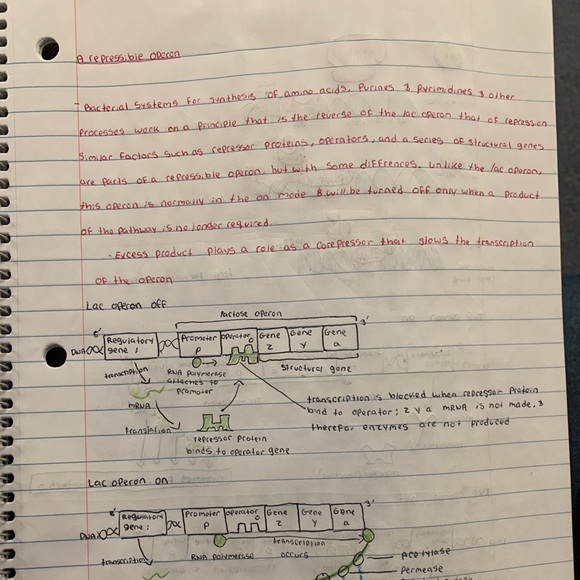 A repressible operon
- Bacterial systems for synthesis of amino acids, Purines & Pyrimidines & other
Processes work on a principle that is the reverse of the lac operon that of repression
Similar factors such as repressor proteins, operators, and a series of structural genes
are parts of a repressible operon, but with some differences. Unlike the lac operon,
this operon is normally in the on mode & will be turned off only when a product
of the pathway is no longer required.
- Excess product plays a role as a corepressor that slows the transcription
of the operon
Lac operon off
lactose operon
3'
DNA
Regulatory
gene i
Promoter
P
operator
o
Gene
z
Gene
y
Gene
a
transcription
RNA polymerase
attaches to
Promoter
structural gene
mRNA
translation
repressor protein
binds to operator gene
transcription is blocked when repressor Protein
bind to operator; z y a mRNA is not made, &
therefor enzymes are not produced
Lac operon on
3'
DNA
Regulatory
gene i
Promoter
P
operator
o
Gene
z
Gene
y
Gene
a
transcription
RNA polymerase
transcription
occurs
Acetylase
Permease